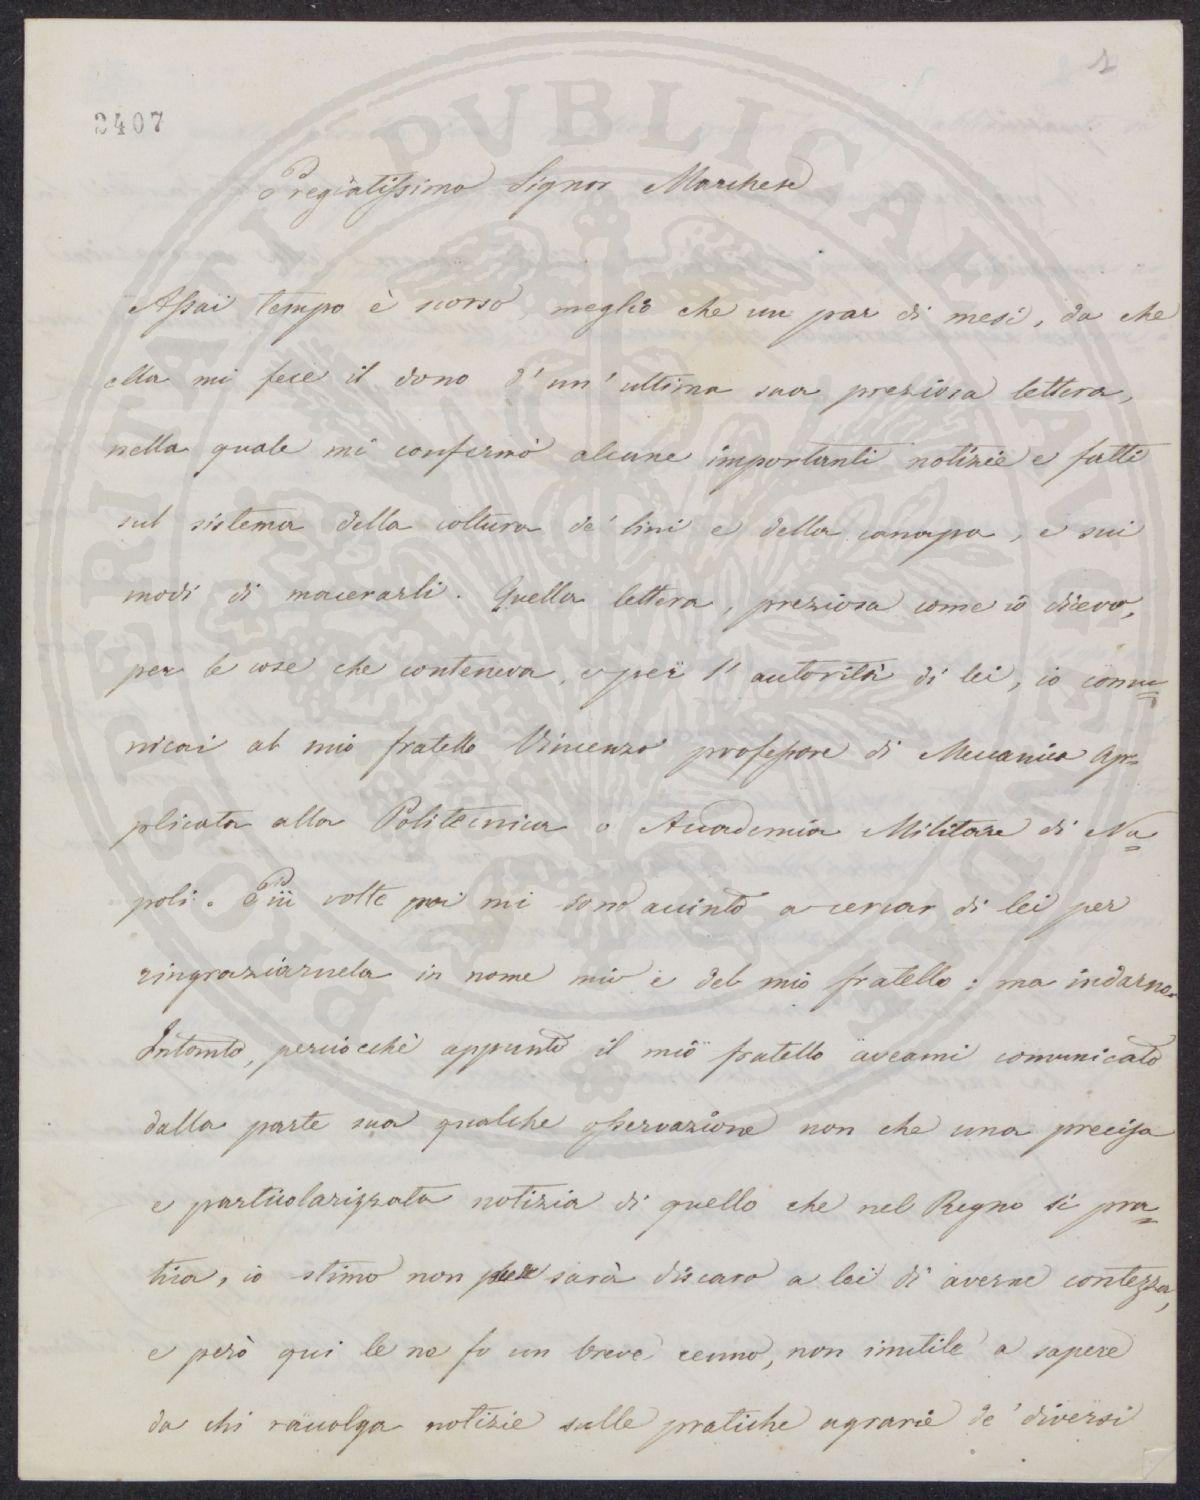 1
2407
Pregiatissimo Signor Marchese
Assai tempo è scorso, meglio che un par di mesi, da che
ella mi fece il dono d'un' ultima sua preziosa lettera,
nella quale mi confermò alcune importanti notizie e fatti
sul sistema della coltura de' lini e della canapa, e sui
modi di macerarli. Quella lettera, preziosa come io diceva,
per le cose che conteneva, e per l'autorità di lei, io comu=
nicai al mio fratello Vincenzo professore di Meccanica ap=
plicata alla Politecnica o Accademia Militare di Na=
poli. Più volte poi mi sono accinto a cercar di lei per
ringraziarnela in nome mio e del mio fratello: ma indarno.
Intanto, perciocchè appunto il mio fratello aveami comunicato
dalla parte sua qualche osservazione non che una precisa
e particolarizzata notizia di quello che nel Regno si pra=
tica, io stimo non sarà discaro a lei di averne contezza,
e però qui le ne fo un breve cenno, non inutile a sapere
da chi raccolga notizie sulle pratiche agrarie de' diversi
PROSPERITATI PVBLICAE AVGENDAE